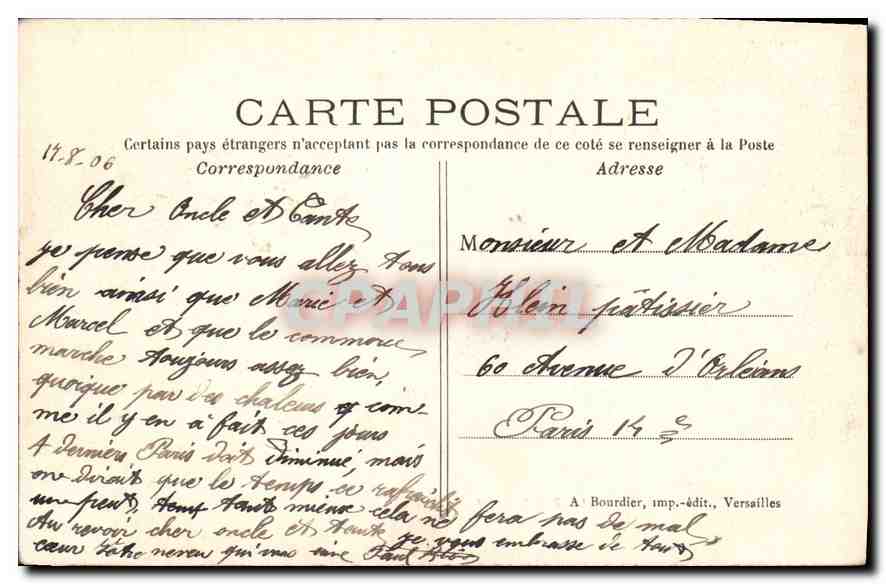 CARTE POSTALE
Certains pays étrangers n'acceptant pas la correspondance de ce coté se renseigner à la Poste
Correspondance
Adresse
17-8-06
Cher Oncle et Tante
je pense que vous allez tous
bien ainsi que Marie et
Marcel et que le commerce
marche toujours assez bien,
quoique par des chaleurs com-
me il y en a fait ces jours
derniers Paris doit diminué, mais
on dirait que le temps se rafraichit
un peut, tant mieux cela ne fera pas de mal
Au revoir cher oncle et tante je vous embrasse de tout
cœur Votre neveu qui vous aime Paul
Monsieur et Madame
Klein pâtissier
60 Avenue d'Orléans
Paris 14e
A Bourdier, imp.-édit., Versailles
CPAPHIL